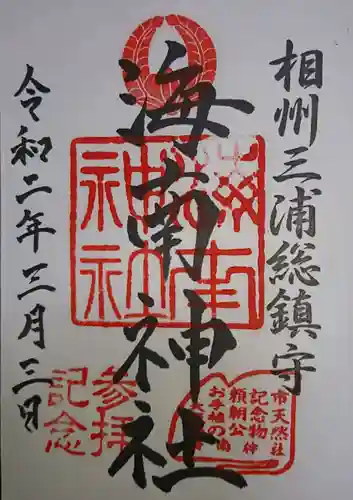 相州三浦総鎮守
海南神社
令和二年三月三日
海南
神社
参拝
記念
市天然
記念物
頼朝公
お手植の